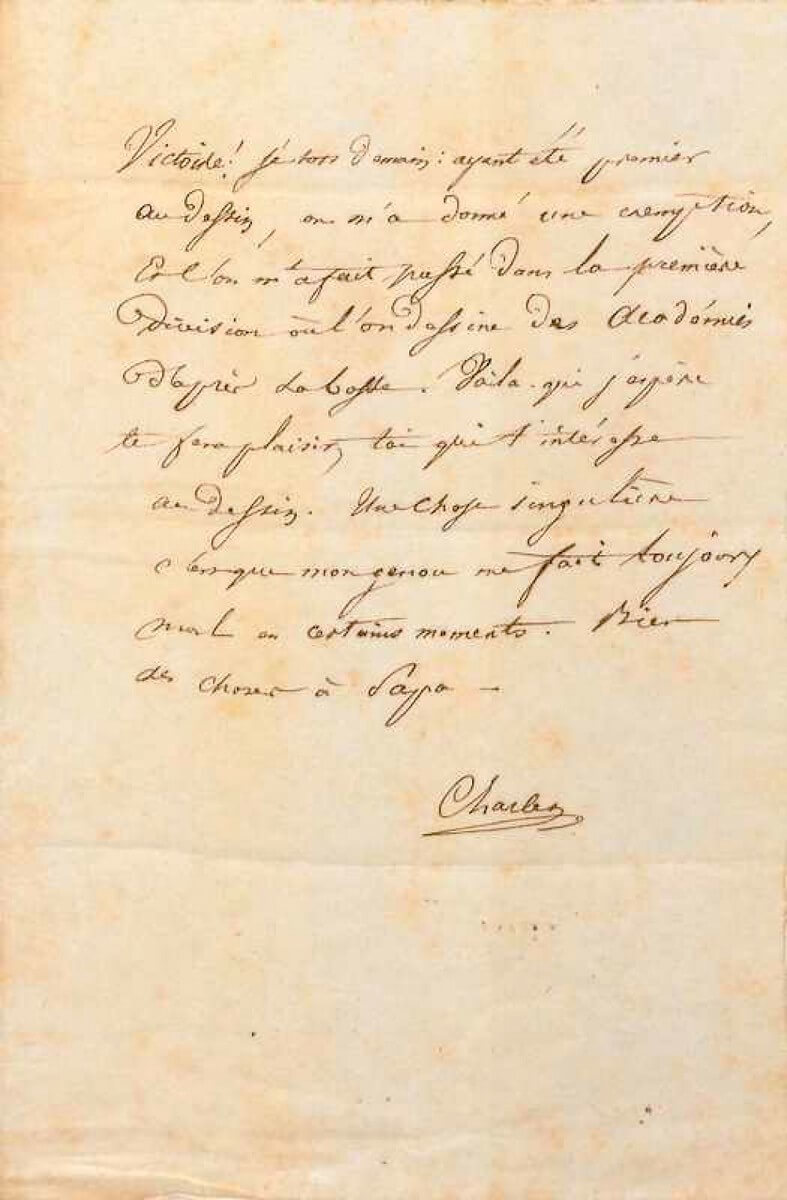 Victoire! je sors demain: ayant été premier
au dessin, on m'a donné une exemption,
Et l'on m'a fait passé dans la première
Division où l'on dessine des Académies
D'après La bosse. Voila qui j'espère
te fera plaisir, toi qui t'intéresse
au dessin. Une chose singulière
c'est que mon genou me fait toujours
mal en certains moments. Bien
des choses à Papa —
Charles